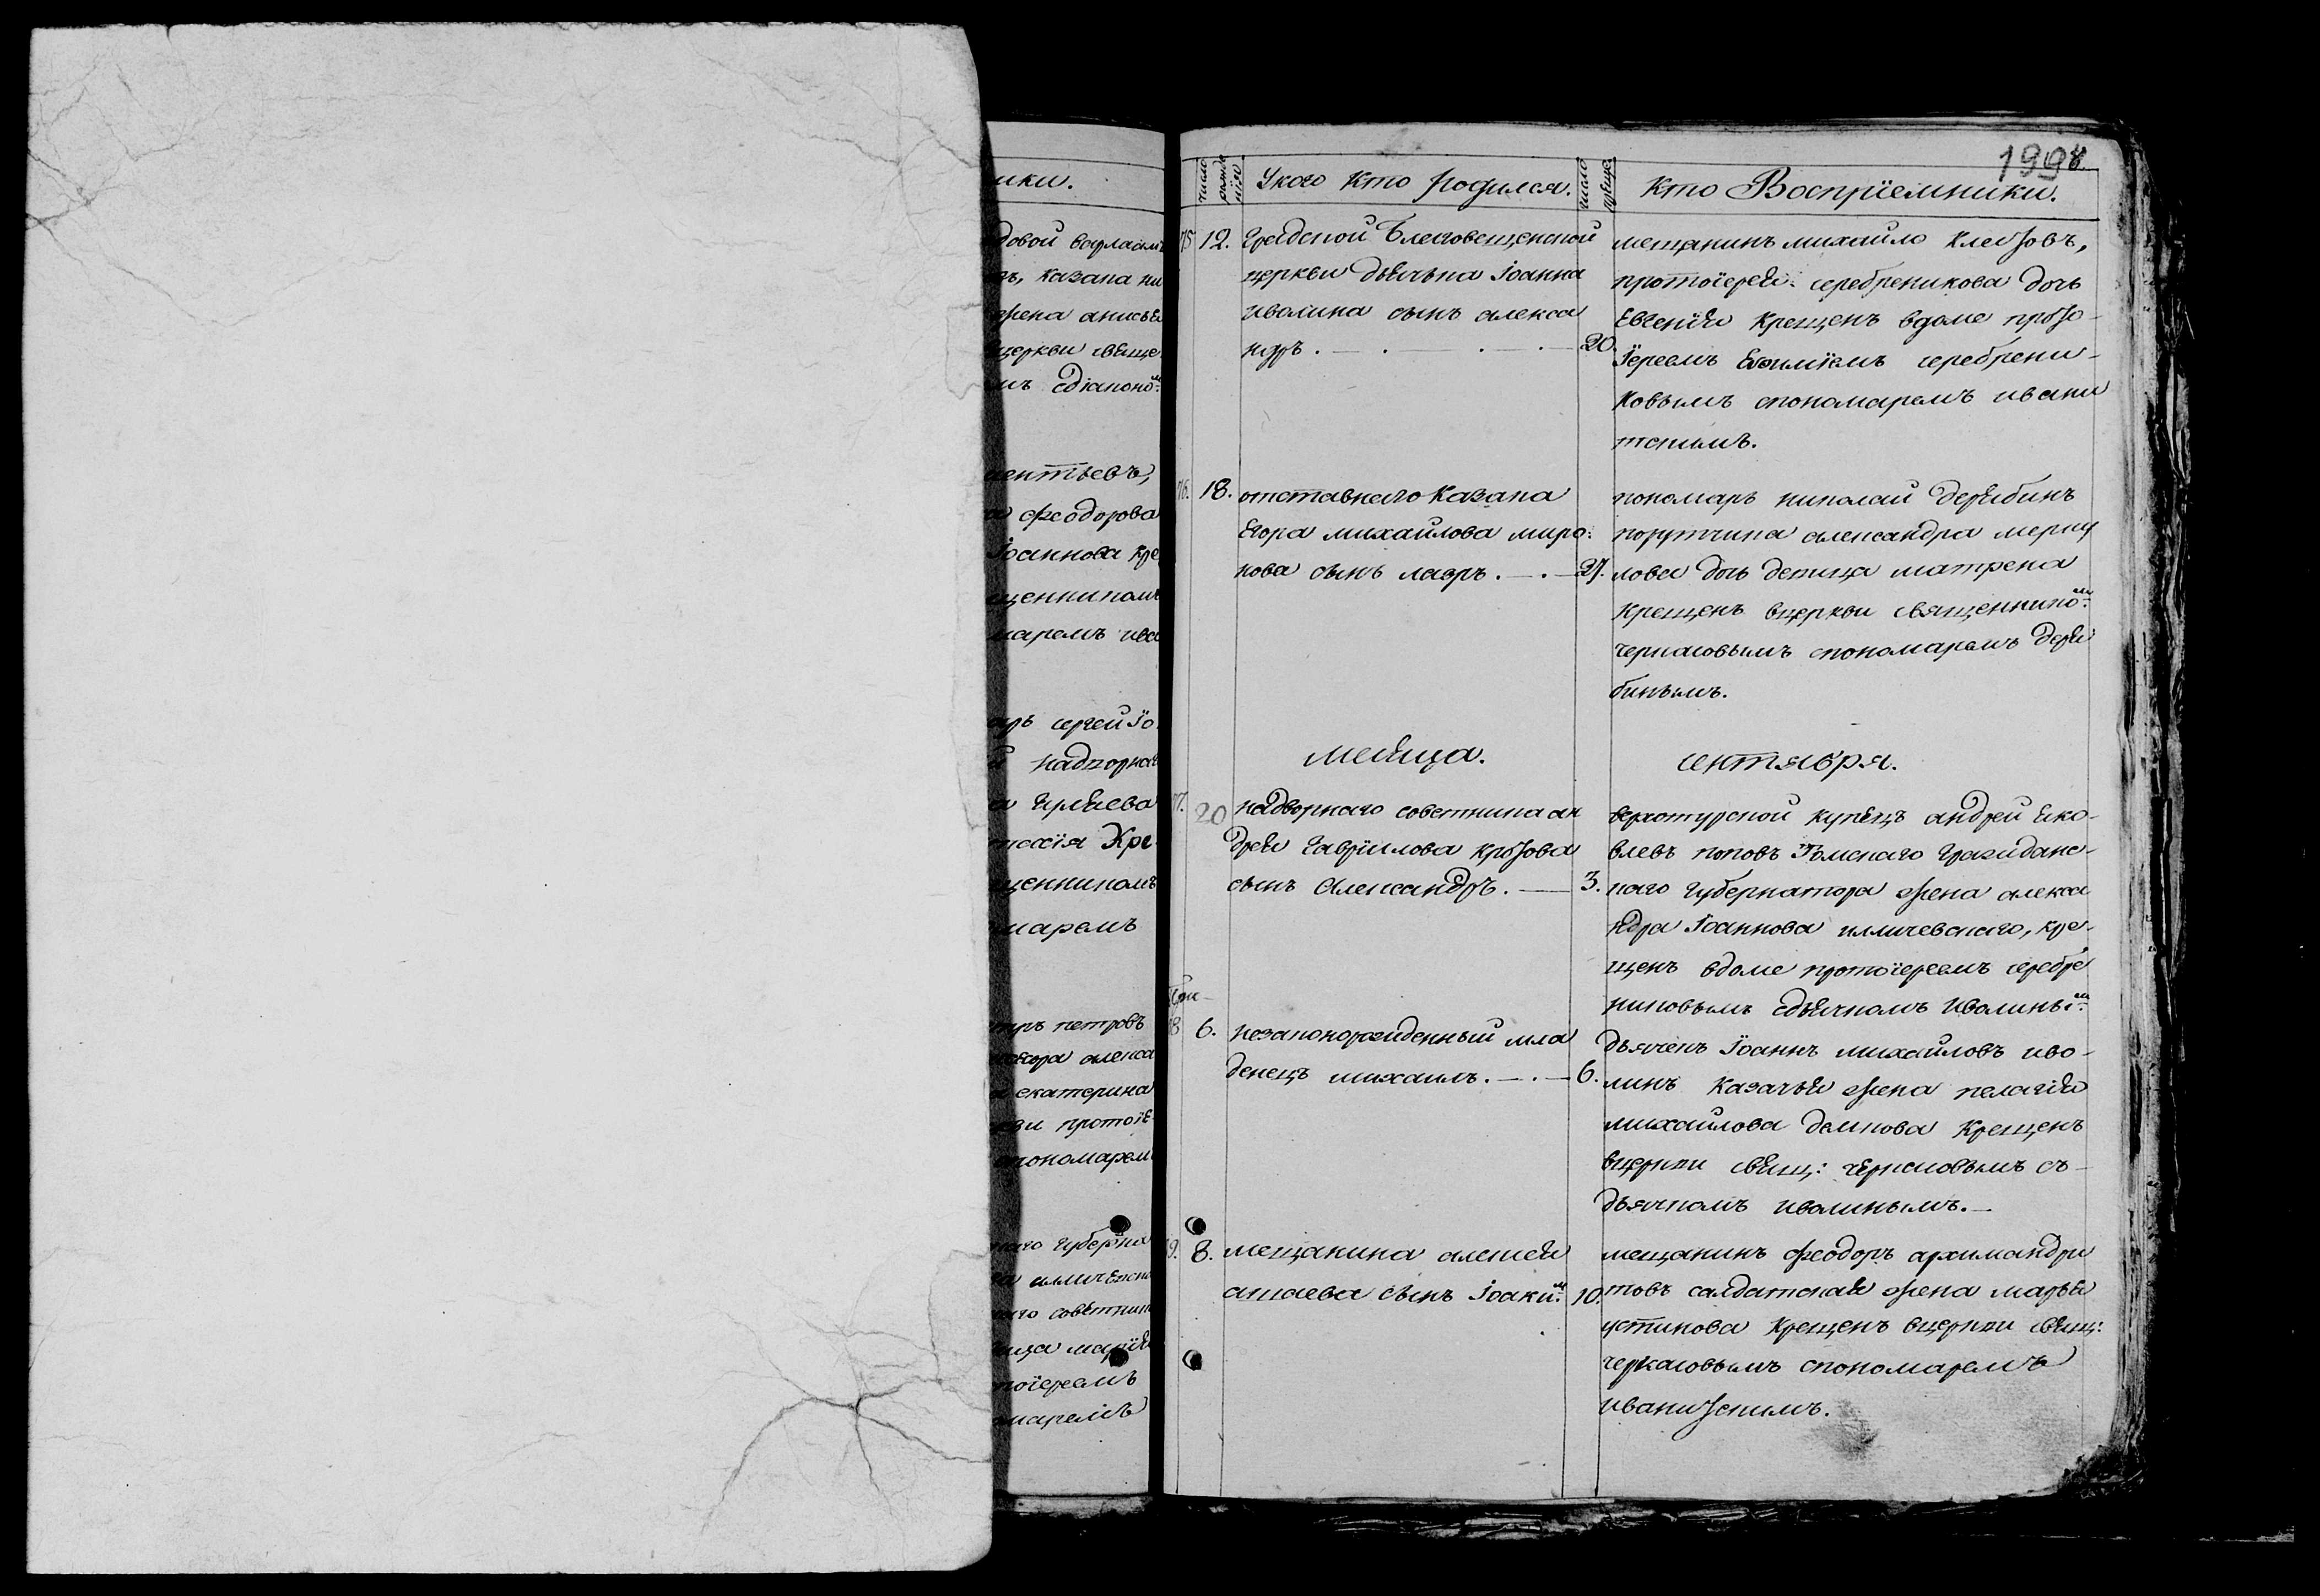 ики.
довой варлаам
въ, казака ни
жена анисья
церкви свяще
мъ сдіакономъ
ментьевъ,
а Феодорова
Іоаннова кре
щенникомъ
маремъ ива
арь сергей Іо
й надворнаго
а Гиляева
тасія Кре
щенникомъ
маремъ
тръ петровъ
алекса
екатерина
кви протоіе
спономаремъ
наго Губерна
илличевска
наго советник
вица марія
тоіереемъ
омаремъ
1998
число рожденія
У кого кто родился.
число крещен.
кто Воспріемники.
75 12. Градской Благовещенской
церкви дьячька Іоанна
иволина сынъ алекса
ндръ . — . — . — . — 20.
мещанинъ михайло Клестовъ,
протоіерея серебреникова дочь
Евгенія Крещенъ вдоме прото-
Іереемъ Евфиміемъ серебрени-
ковымъ спономаремъ ивани
тскимъ.
76. 18. отставнаго Казака
Егора михайлова миро-
нова сынъ лавръ . — . — 27.
пономарь николай дерябинъ
порутчика александра мерку
лова дочь девица матрена
Крещенъ вцеркви священникомъ
черкасовымъ спономаремъ деря
бинымъ.
месяца. сентября.
77. 20 надворнаго советника ан
дрея Гавріилова Кротова
сынъ Александръ. — 3.
верхотурской купецъ андрей яко-
влевъ поповъ Томскаго Гражданс-
каго Губернатора жена алекса
ндра Іоаннова илличевскаго, кре-
щенъ вдоме протоіереемъ серебре
никовымъ сдьячкомъ Иволинымъ
78 6. незаконорожденный мла
денецъ михаилъ. — . — 6.
дьячекъ Іоаннъ михайловъ иво-
линъ казачья жена пелагія
михайлова демкова Крещенъ
вцеркви свящ: черкасовымъ съ-
дьячкомъ иволинымъ. —
79. 8. мещанина алексея
ашаева сынъ Іоакимъ 10.
мещанинъ Феодоръ архимандри
товъ салдатская жена марья
устинова Крещенъ вцеркви свящ:
черкасовымъ спономаремъ
иванитскимъ.